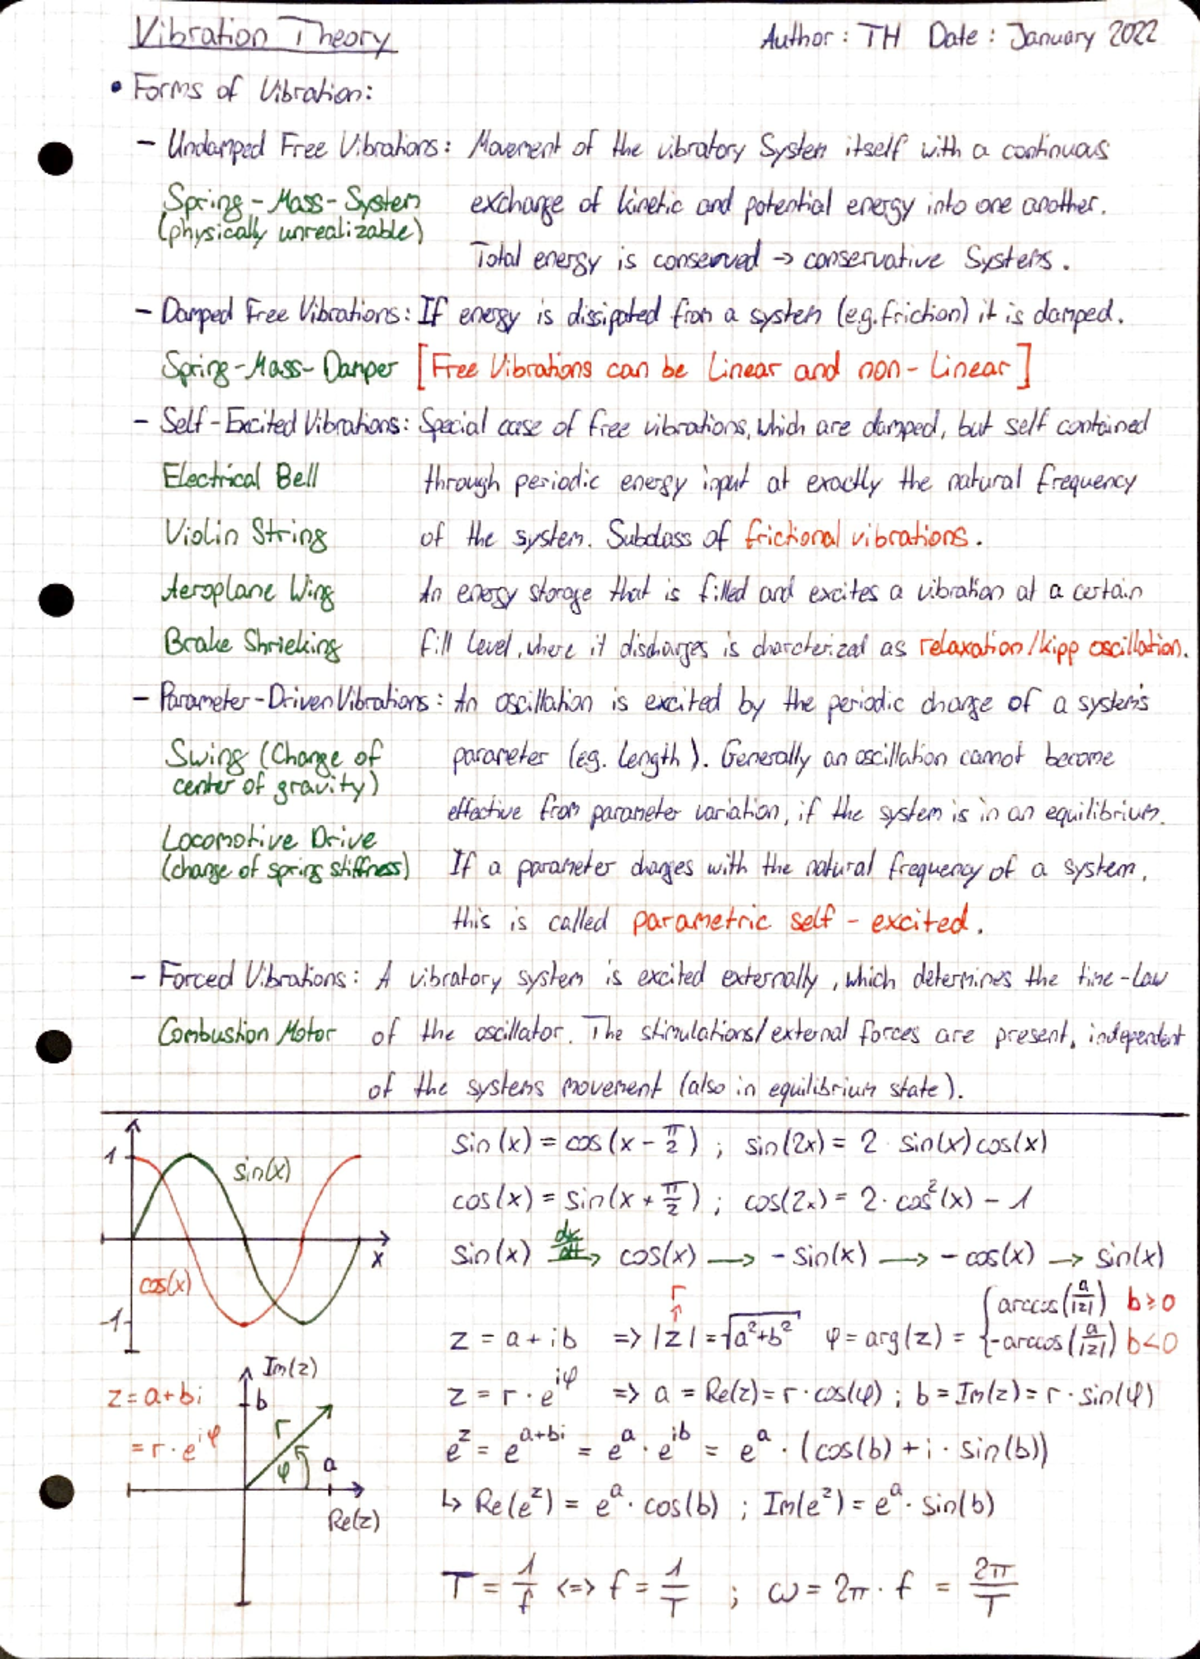 Vibration Theory Author: TH Date: January 2022
• Forms of Vibration:
- Undamped Free Vibrations: Movement of the vibratory System itself with a continuous
Spring-Mass-System exchange of kinetic and potential energy into one another.
(physically unrealizable)
Total energy is conserved → conservative Systems.
- Damped Free Vibrations: If energy is dissipated from a system (e.g. friction) it is damped.
Spring-Mass-Damper [Free Vibrations can be Linear and non-Linear]
- Self-Excited Vibrations: Special case of free vibrations, which are damped, but self contained
Electrical Bell through periodic energy input at exactly the natural frequency
Violin String of the system. Subclass of frictional vibrations.
Aeroplane Wing An energy storage that is filled and excites a vibration at a certain
Brake Shrieking fill level, where it discharges is charcterized as relaxation/kipp oscillation.
- Parameter-Driven Vibrations: An oscillation is excited by the periodic change of a system's
Swing (Change of parameter (eg. length). Generally an oscillation cannot become
center of gravity)
effective from parameter variation, if the system is in an equilibrium.
Locomotive Drive
(change of spring stiffness) If a parameter changes with the natural frequency of a system,
this is called parametric self-excited.
- Forced Vibrations: A vibratory system is excited externally, which determines the time-law
Combustion Motor of the oscillator. The stimulations/external forces are present, independent
of the systems movement (also in equilibrium state).
1 sin(x) cos(x) -1 x
sin(x) = cos(x - π/2) ; sin(2x) = 2·sin(x)cos(x)
cos(x) = sin(x + π/2) ; cos(2x) = 2·cos²(x) - 1
sin(x) → cos(x) → -sin(x) → -cos(x) → sin(x)
z = a + ib => |z| = √(a²+b²) φ = arg(z) = { arccos(a/|z|) b≥0
r -arccos(a/|z|) b<0
Im(z) b r φ a Re(z)
z = a+bi
= r·e^iφ
z = r·e^iφ => a = Re(z) = r·cos(φ) ; b = Im(z) = r·sin(φ)
e^z = e^(a+bi) = e^a · e^ib = e^a · (cos(b) + i·sin(b))
↳ Re(e^z) = e^a · cos(b) ; Im(e^z) = e^a · sin(b)
T = 1/f <=> f = 1/T ; ω = 2π·f = 2π/T